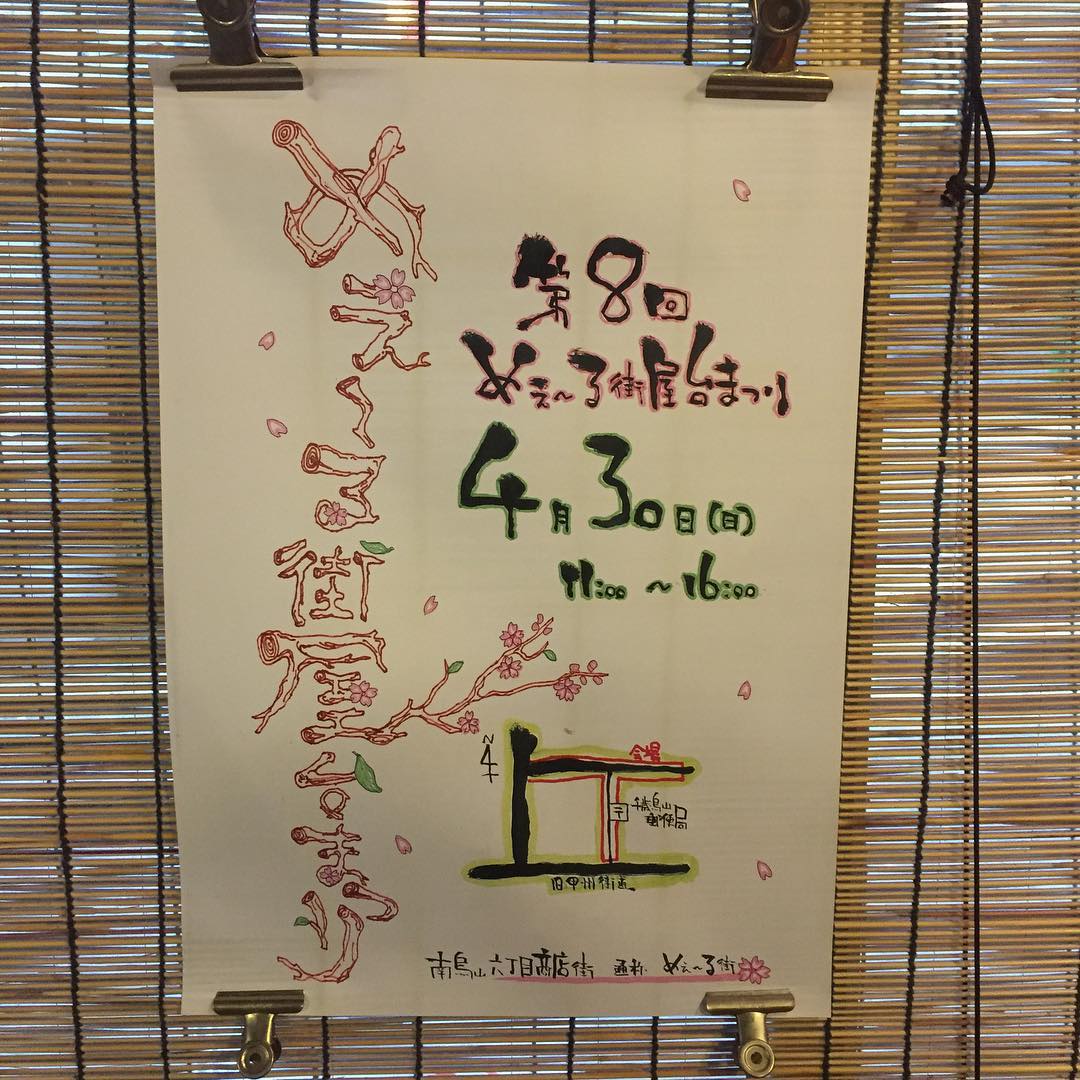 めえ〜る街屋台まつり
第8回
めぇ〜る街屋台まつり
4月30日(日)
11:00 〜 16:00
N
会場
〒
千歳烏山
郵便局
旧甲州街道
南烏山六丁目商店街 通称 めぇ〜る街